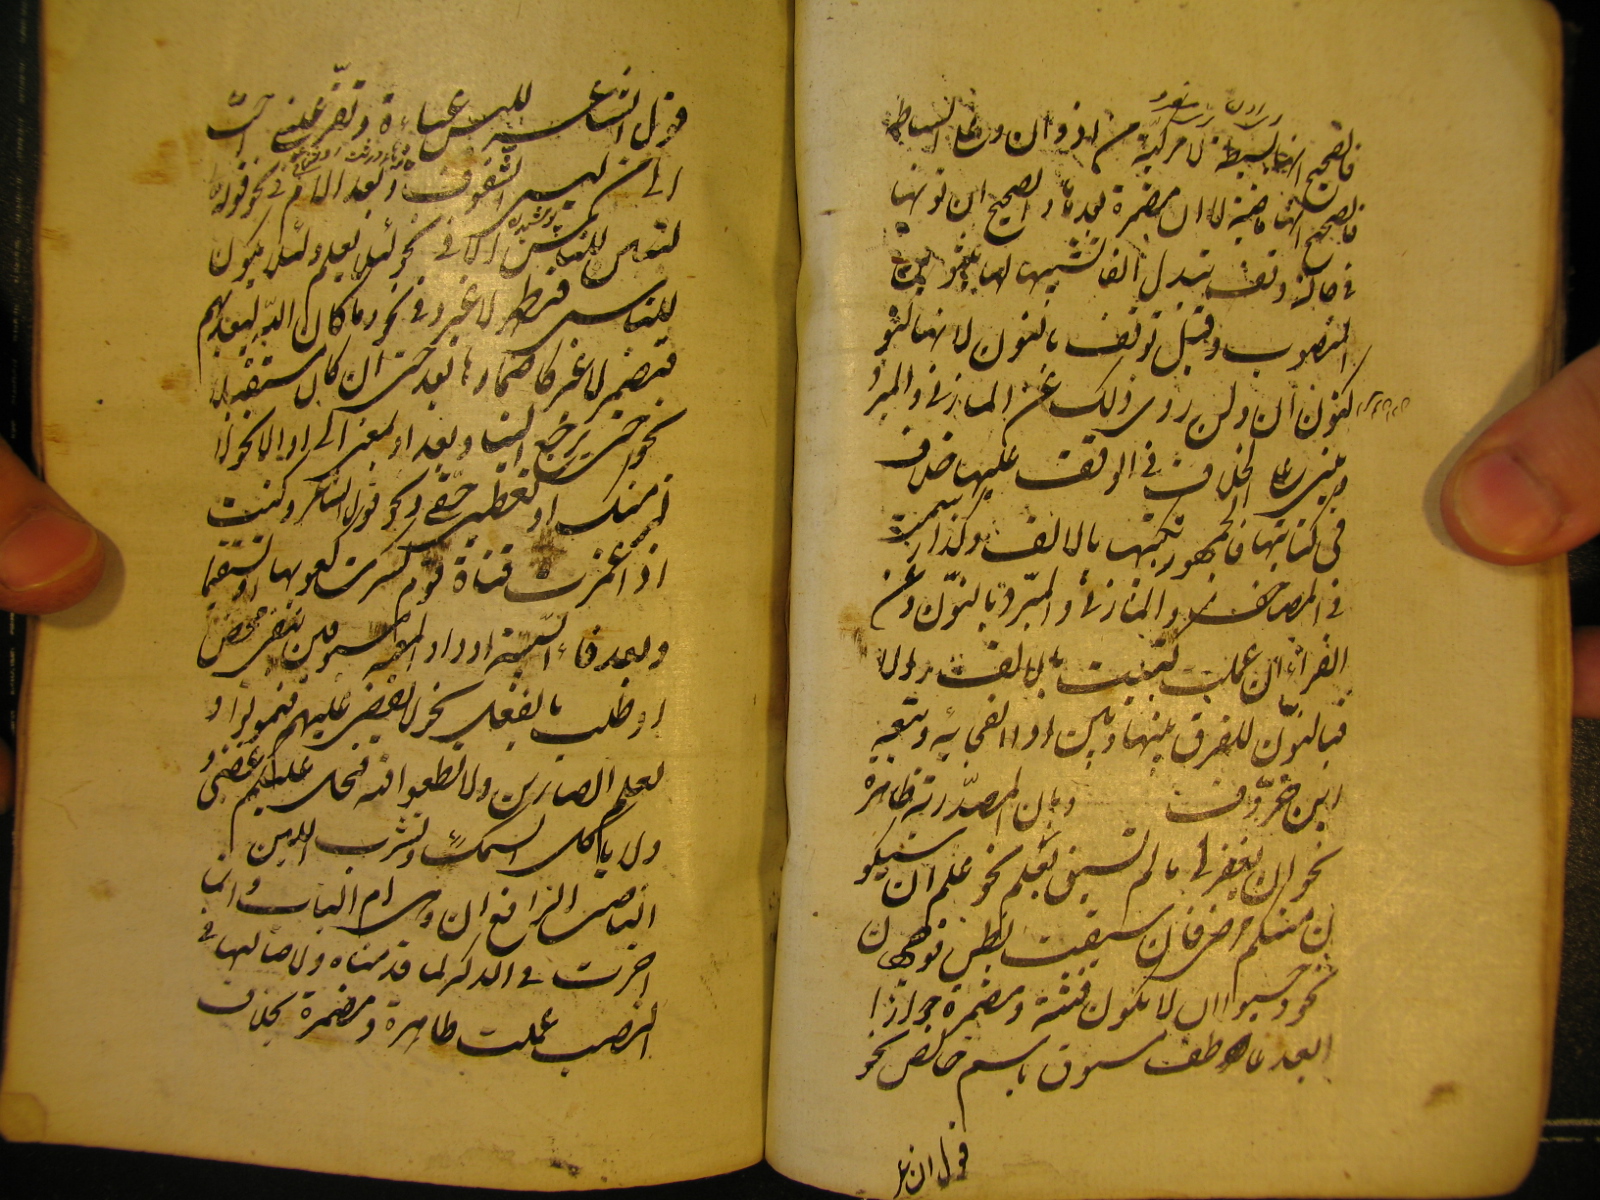 فالصحيح انها بسيطة لا مركبة من اذ و ان وعلى البساطة
فالصحيح انها ناصبة لا ان مضمرة بعدها والصحيح ان نونها
في حالة وقف تبدل الفا تشبيها لها بتنوين
المنصوب وقيل توقف بالنون لانها كنون
كنون ان ولن روى ذلك عن المازني والمبرد
وينبني على الخلاف في الوقف عليها خلاف
في كتابتها فالجمهور يكتبها بالالف وكذا رسمت
في المصاحف والمازني والمبرد بالنون وعن
الفراء ان عملت كتبت بالالف والا
فبالنون للفرق بينها وبين اذا الفجائية وتبعه
ابن خروف وبان المصدرية ظاهرة
نحو ان يغفر لي ما لم تسبق بعلم نحو علم ان سيكو
ن منكم مرضى فان سبقت بظن فوجهان
نحو وحسبوا ان لا تكون فتنة ومضمرة جوازا
بعد عاطف مسبوق باسم خالص نحو
قول الشاعر
قول الشاعر للبس عباءة وتقر عيني احب
الي من لبس الشفوف وبعد اللام في نحو قوله
لتبين للناس الا في نحو لئلا يعلم ولئلا يكون
للناس فتظهر لا غير وفي نحو وما كان الله ليعذبهم
فتضمر لا غير كاضمارها بعد حتى ان كان مستقبلا
نحو حتى يرجع الينا وبعد او بمعنى الى او الا نحو لا
لزمنك او تعطيني حقي ونحو قول الشاعر وكنت
اذا غمزت قناة قوم كسرت كعوبها او تستقيما
وبعد فاء السببية او واو المعية مسبوقين بنفي محض
او طلب بالفعل نحو لا يقضى عليهم فيموتوا و
يعلم الصابرين ولا تطغوا فيه فيحل عليكم غضبي و
ولا تاكل السمك وتشرب اللبن
الناصب الرابع ان وهي ام الباب وانما
اخرت في الذكر لما قدمناه ولاصالتها في
النصب عملت ظاهرة ومضمرة بخلاف